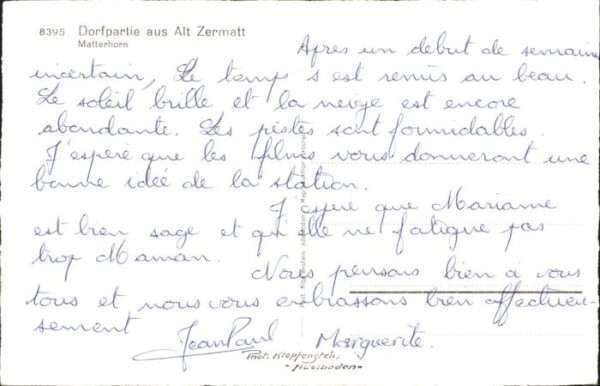 8395 Dorfpartie aus Alt Zermatt
Matterhorn
Après un début de semaine
incertain, Le temps s est remis au beau.
Le soleil brille et la neige est encore
abondante. Les pistes sont formidables.
J'espère que les films vous donneront une
bonne idée de la station.
J'espère que Marianne
est bien sage et qu'elle ne fatigue pas
trop Maman.
Nous pensons bien à vous
tous et nous vous embrassons bien affectueu-
sement
JeanPaul Marguerite.
Phot. Klopfenstein,